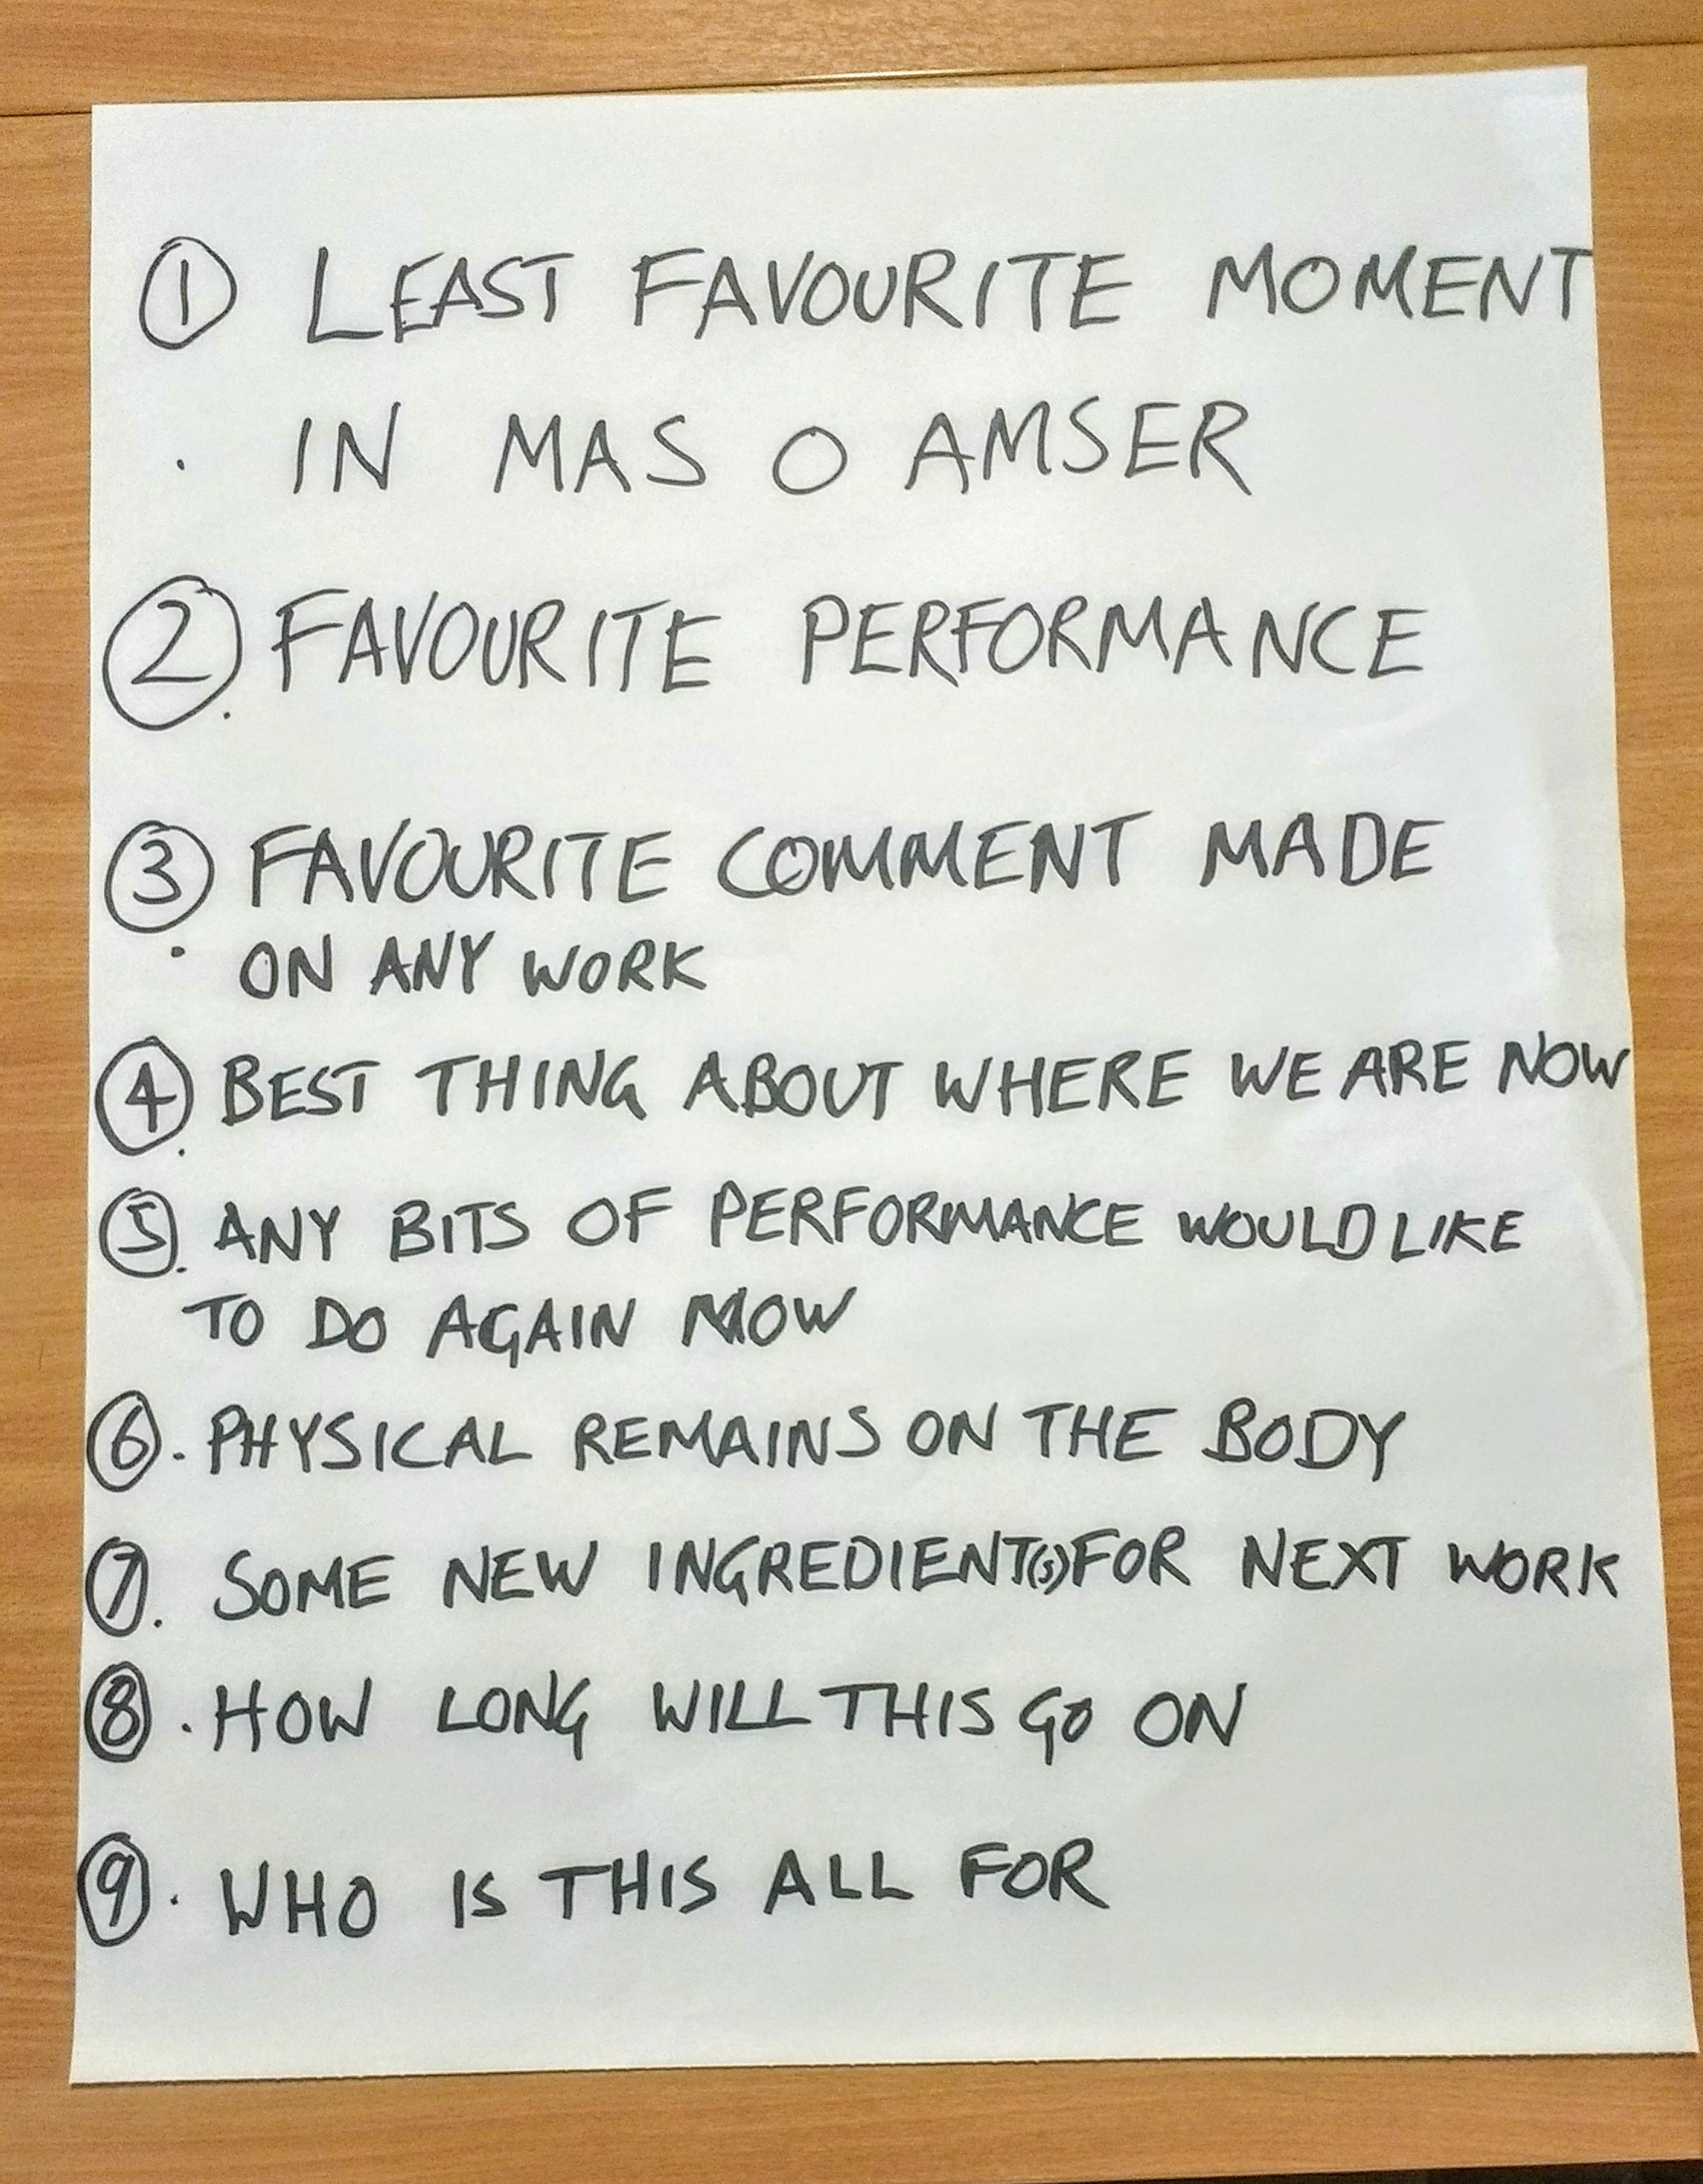 ① LEAST FAVOURITE MOMENT
. IN MAS O AMSER
②. FAVOURITE PERFORMANCE
③ FAVOURITE COMMENT MADE
. ON ANY WORK
④. BEST THING ABOUT WHERE WE ARE NOW
⑤. ANY BITS OF PERFORMANCE WOULD LIKE
TO DO AGAIN NOW
⑥. PHYSICAL REMAINS ON THE BODY
⑦. SOME NEW INGREDIENT(S) FOR NEXT WORK
⑧. HOW LONG WILL THIS GO ON
⑨. WHO IS THIS ALL FOR